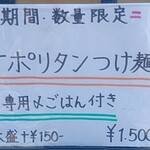 期間・数量限定=
ポリタンつけ麺
専用〆ごはん付き
大盛+¥150-
¥1.500